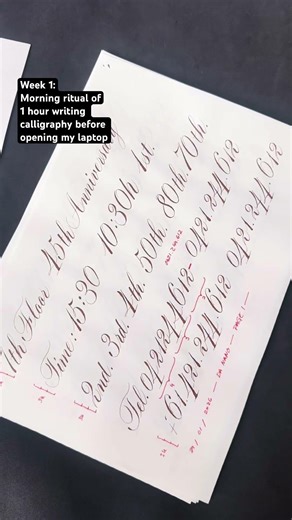 Week 1:
Morning ritual of
1 hour writing
calligraphy before
opening my laptop
Floor 45th Anniversary
Time: 15:30 10:30h 1st.
2nd. 3rd. 4th. 50th. 80th. 70th.
Tel. 0421244612 - 0421.244.612
+61421244612 0421.244.612